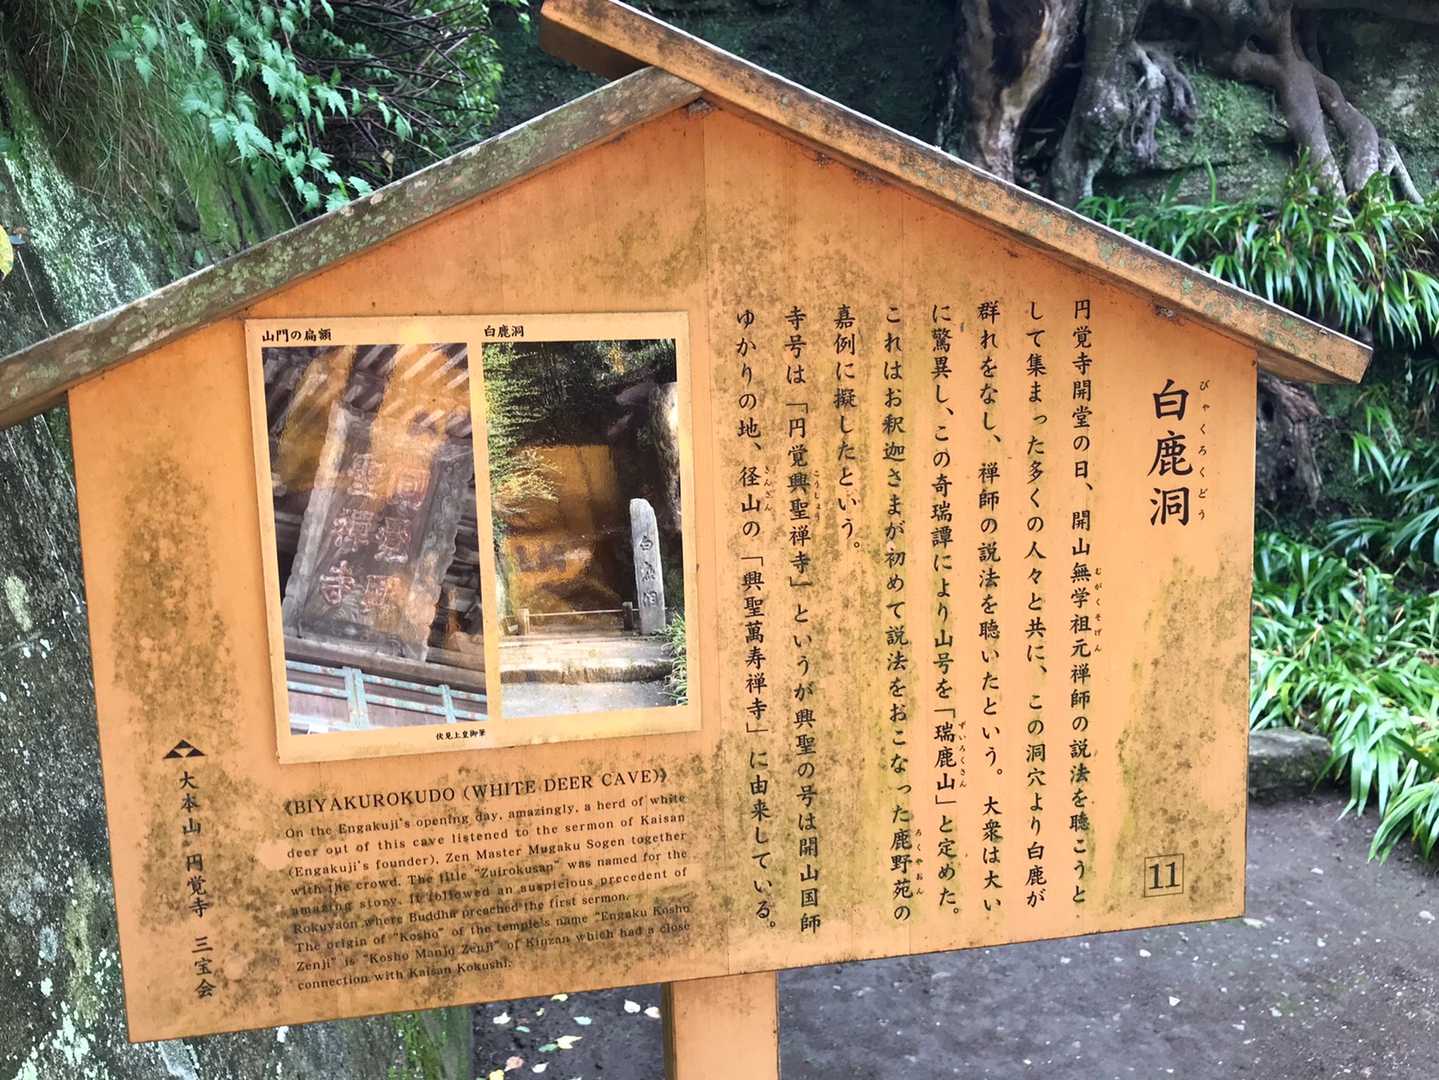 白鹿洞
びゃくろくどう
円覚寺開堂の日、開山無学祖元禅師の説法を聴こうと
むがくそげん
して集まった多くの人々と共に、この洞穴より白鹿が
群れをなし、禅師の説法を聴いたという。大衆は大い
に驚異し、この奇瑞譚により山号を「瑞鹿山」と定めた。
ずいろくさん
これはお釈迦さまが初めて説法をおこなった鹿野苑の
ろくやおん
嘉例に擬したという。
寺号は「円覚興聖禅寺」というが興聖の号は開山国師
こうしょう
ゆかりの地、径山の「興聖萬寿禅寺」に由来している。
きんざん
11
山門の扁額
白鹿洞
円覚興
聖禅寺
白鹿洞
伏見上皇御筆
《BIYAKUROKUDO (WHITE DEER CAVE)》
On the Engakuji's opening day, amazingly, a herd of white
deer out of this cave listened to the sermon of Kaisan
(Engakuji's founder), Zen Master Mugaku Sogen together
with the crowd. The title "Zuirokusan" was named for the
amazing story. It followed an auspicious precedent of
Rokuyaon where Buddha preached the first sermon.
The origin of "Kosho" of the temple's name "Engaku Kosho
Zenji" is "Kosho Manjo Zenji" of Kinzan which had a close
connection with Kaisan Kokushi.
大本山 円覚寺 三宝会